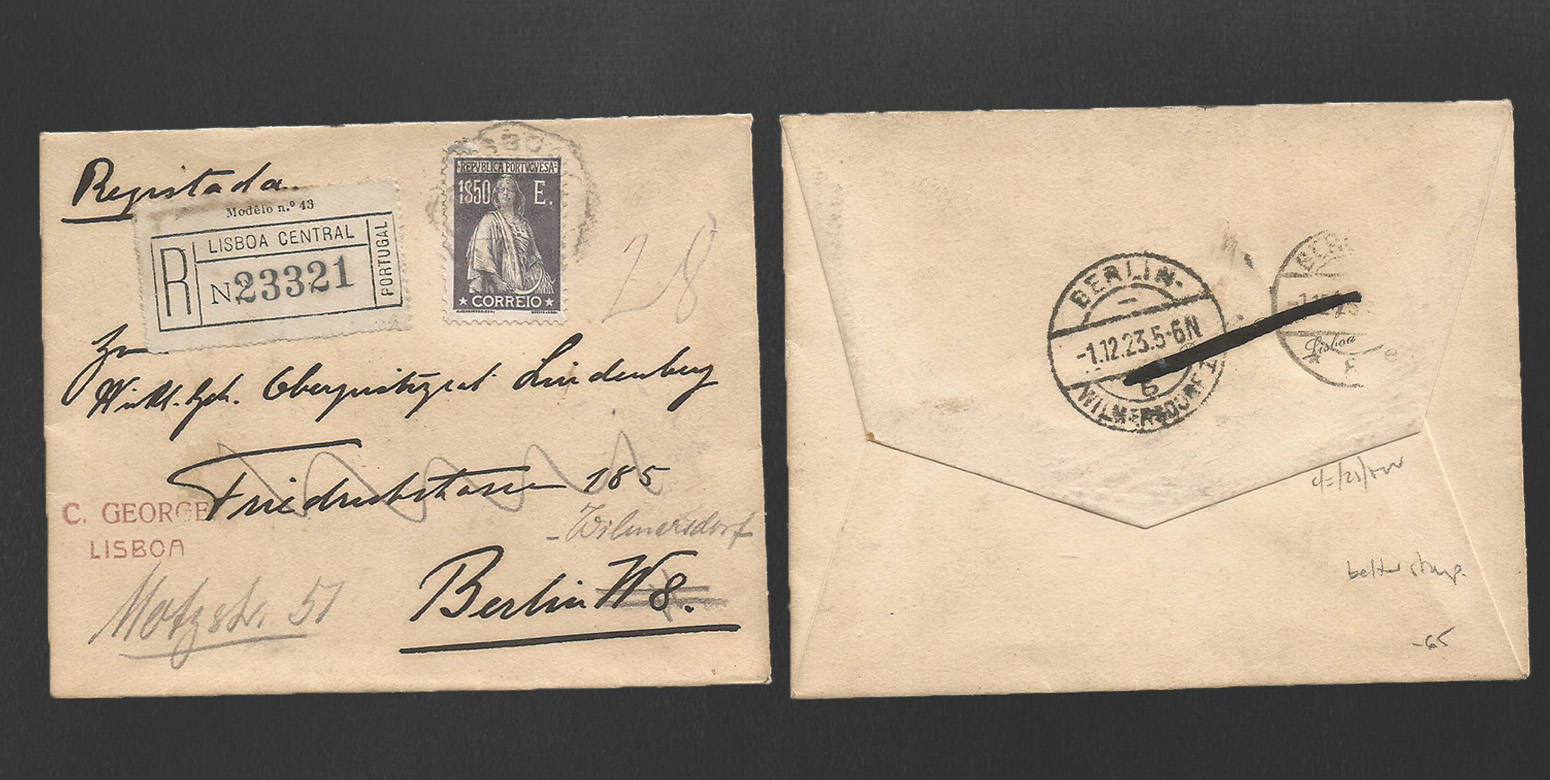 Registada
Modêlo n.º 43
R LISBOA CENTRAL PORTUGAL
N 23321
LISBOA
REPVBLICA PORTVGVESA
1$50 E.
★ CORREIO ★
28
Wirkl. Geh. Oberjustizrat Lindenberg
Friedrichstrasse 185
C. GEORGE
LISBOA
Wilmersdorf
Motzstr. 51
Berlin W 8.
BERLIN-
-1.12.23.5-6N
WILMERSDORF 1
Lisboa
better stamp.
-65